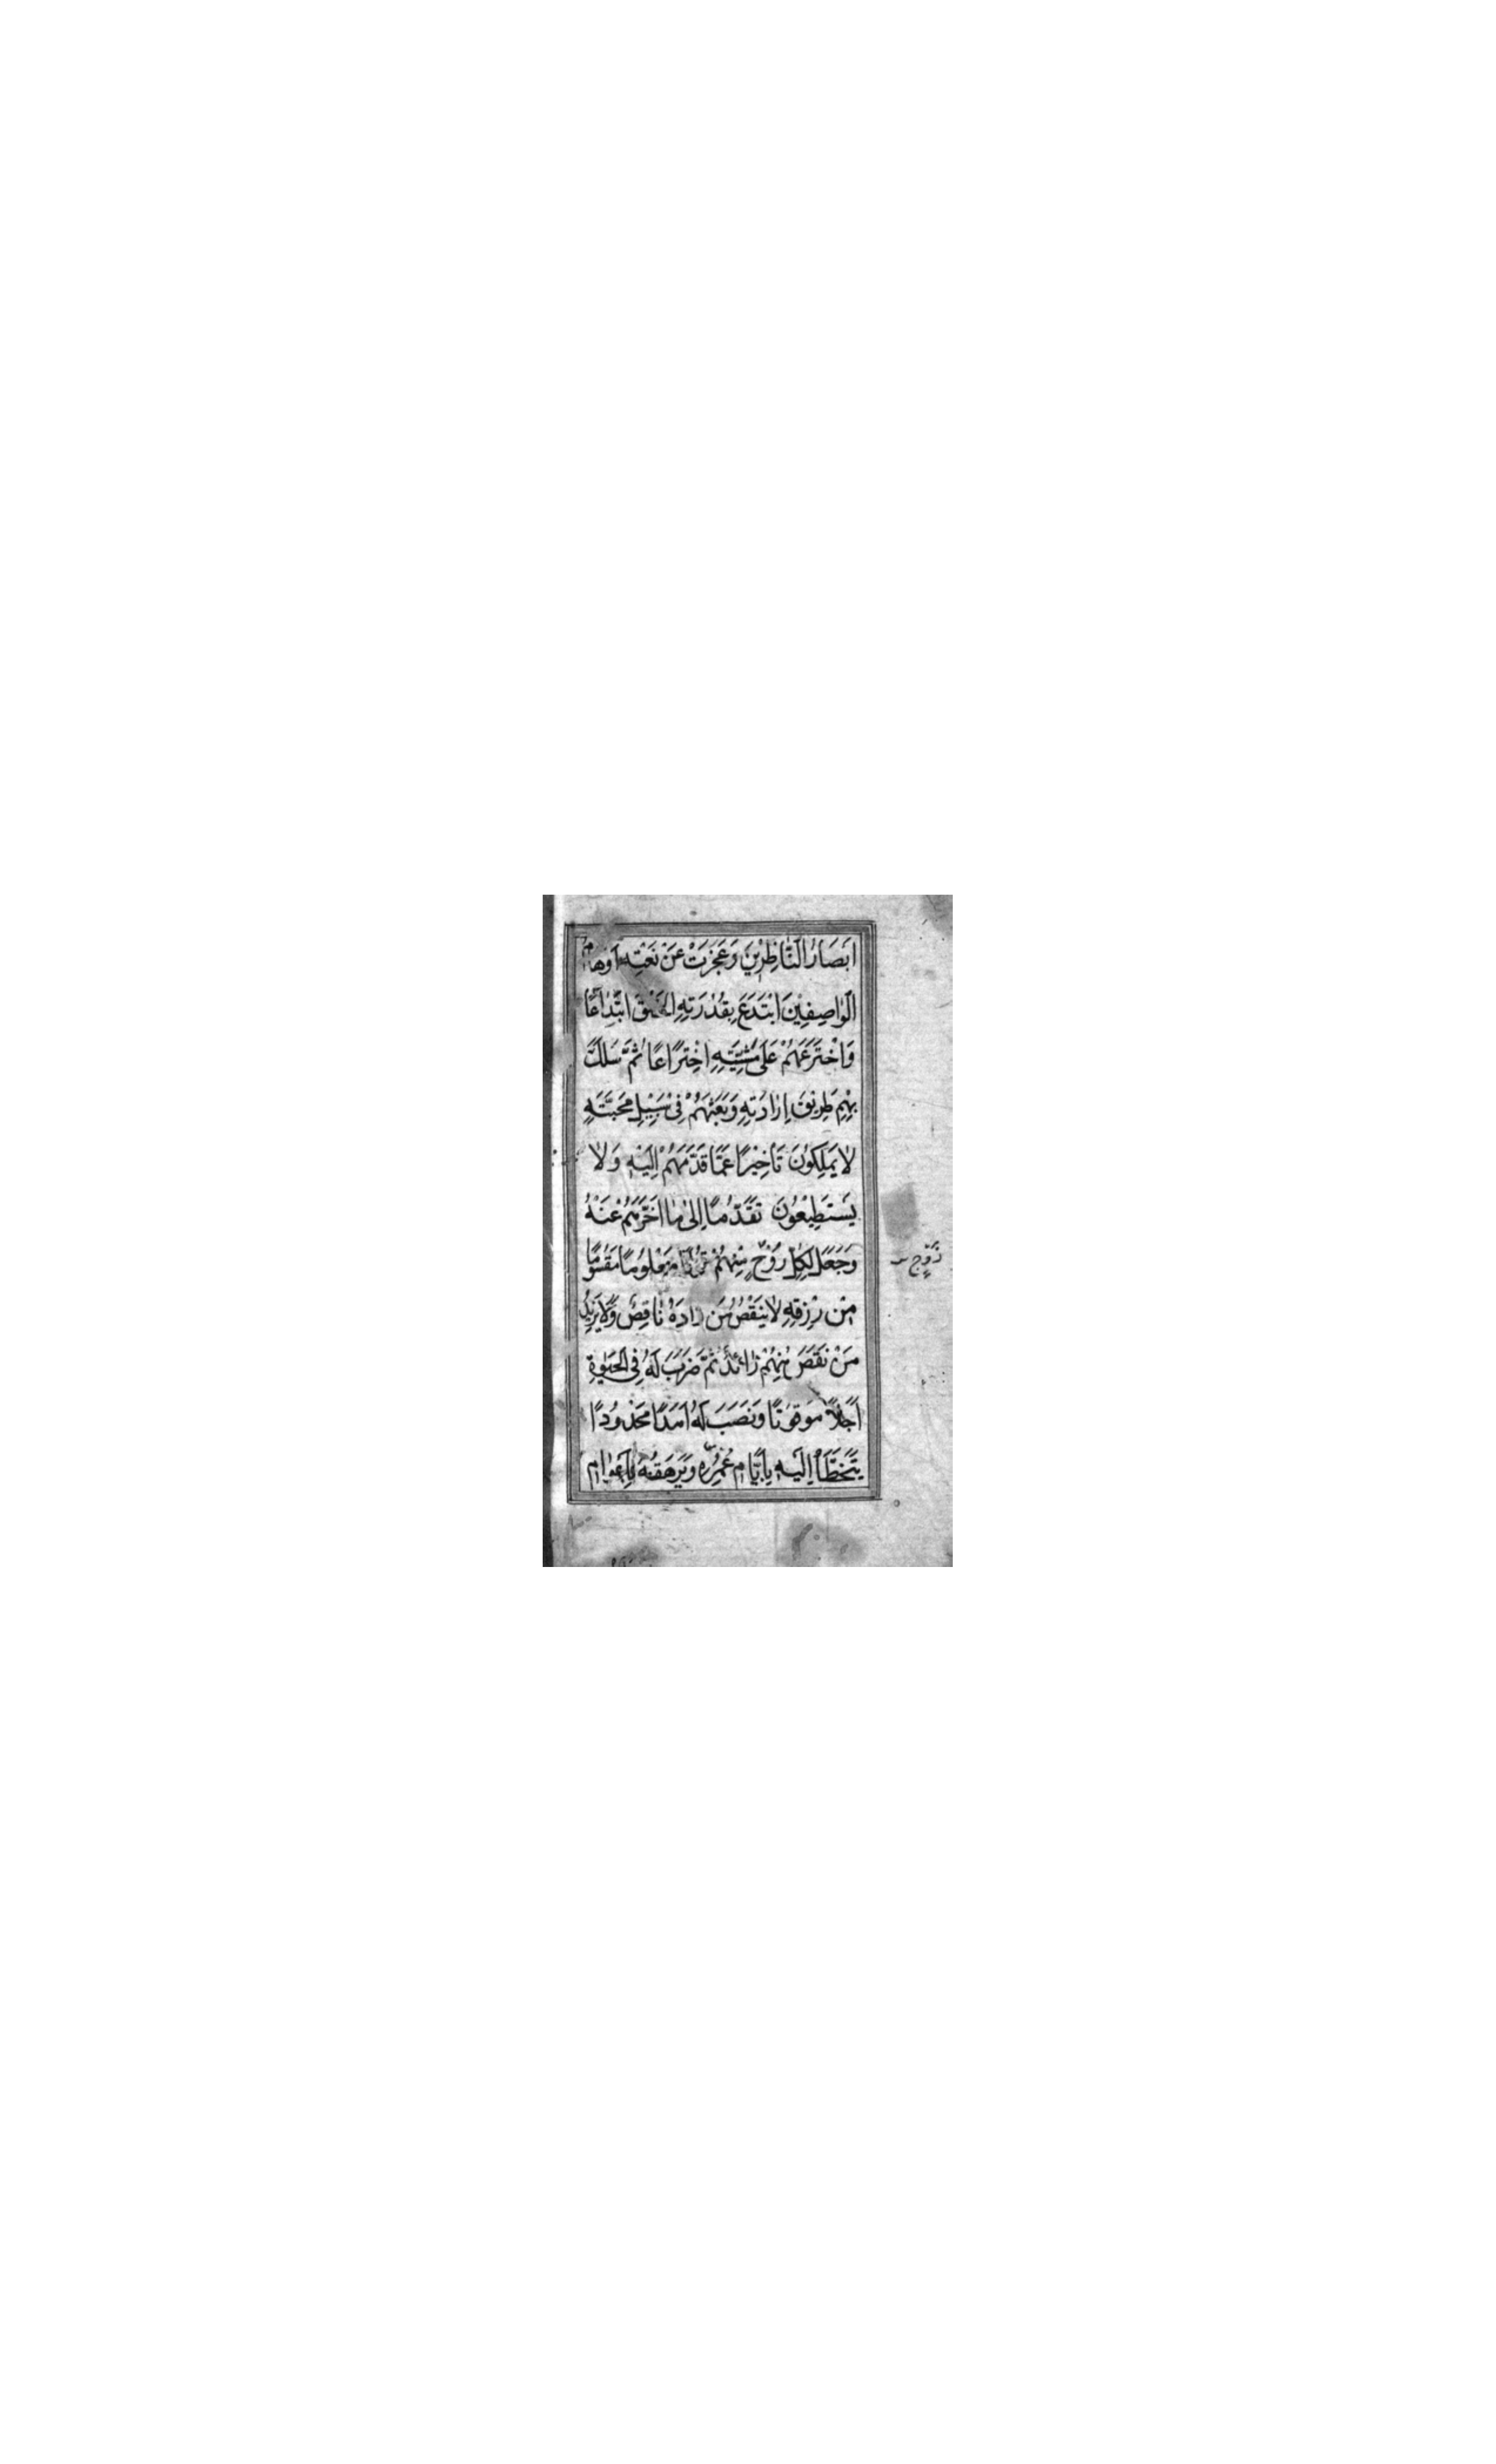 اَبْصَارُ النَّاظِرِيْنَ وَعَجَزَتْ عَنْ نَعْتِهِ اَوْهَامُ
الْوَاصِفِيْنَ ابْتَدَعَ بِقُدْرَتِهِ الْخَلْقَ ابْتِدَاعًا
وَاخْتَرَعَهُمْ عَلَى مَشِيَّتِهِ اخْتِرَاعًا ثُمَّ سَلَكَ
بِهِمْ طَرِيْقَ اِرَادَتِهِ وَبَعَثَهُمْ فِىْ سَبِيْلِ مَحَبَّتِهِ
لَا يَمْلِكُوْنَ تَاْخِيْرًا عَمَّا قَدَّمَهُمْ اِلَيْهِ وَلَا
يَسْتَطِيْعُوْنَ تَقَدُّمًا اِلٰى مَا اَخَّرَهُمْ عَنْهُ
وَجَعَلَ لِكُلِّ رُوْحٍ مِنْهُمْ قُوْتًا مَعْلُوْمًا مَقْسُوْمًا
مِنْ رِزْقِهِ لَا يَنْقُصُ مَنْ زَادَهُ نَاقِصٌ وَلَا يَزِيْدُ
مَنْ نَقَصَ مِنْهُمْ زَائِدٌ ثُمَّ ضَرَبَ لَهُ فِى الْحَيٰوةِ
اَجَلًا مَوْقُوْتًا وَنَصَبَ لَهُ اَمَدًا مَحْدُوْدًا
يَتَخَطَّأُ اِلَيْهِ بِاَيَّامِ عُمُرِهِ وَيَرْهَقُهُ بِاَعْوَامِ
زَوْجٍ